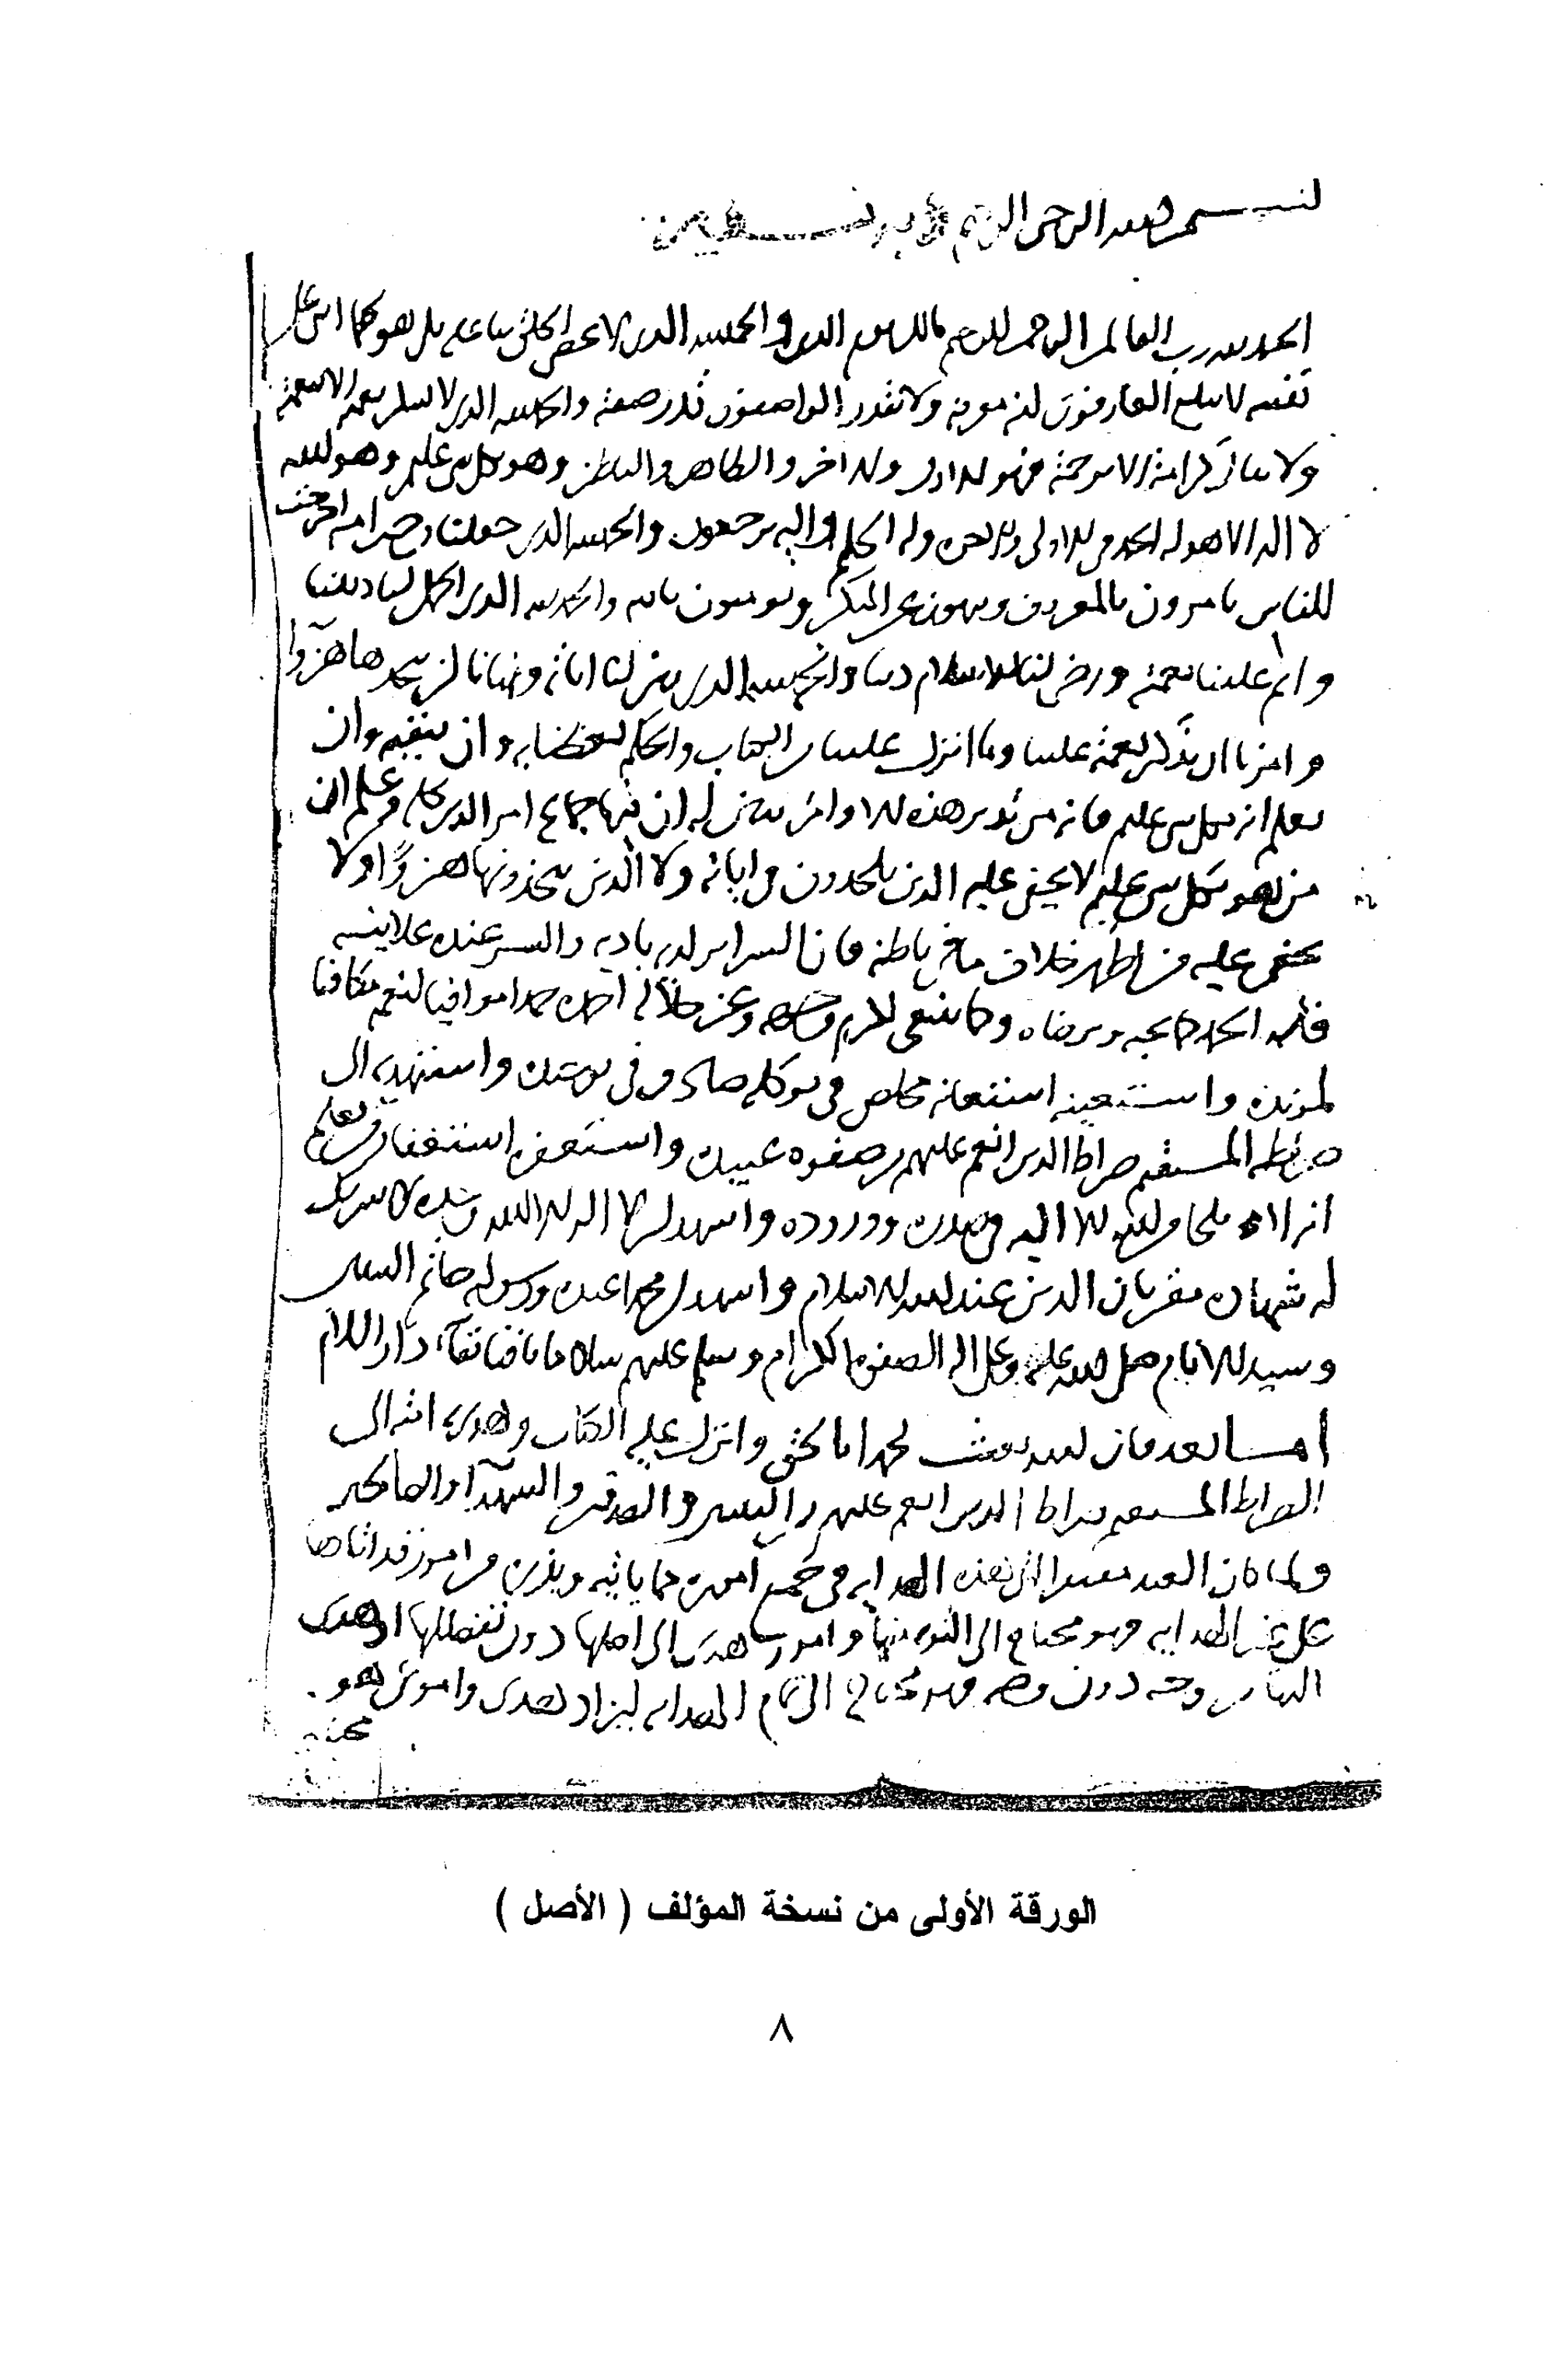 بسم الله الرحمن الرحيم
الحمد لله رب العالمين الرحمن الرحيم مالك يوم الدين والحمد لله الذي لا يحصي الخلق ثناء عليه بل هو كما اثنى على
نفسه لا يبلغ العارفون كنه معرفته ولا يقدر الواصفون قدر صفته والحمد لله الذي لا تشكر نعمته الا بنعمته
ولا تنال كرامته الا برحمته فهو الاول والاخر والظاهر والباطن وهو بكل شي عليم وهو الله
لا اله الا هو له الحمد في الاولى والاخرة وله الحكم واليه ترجعون والحمد لله الذي جعلنا من خير امة اخرجت
للناس يامرون بالمعروف وينهون عن المنكر ويومنون بالله والحمد لله الذي اكمل لنا ديننا
واتم علينا نعمته ورضي لنا الاسلام دينا والحمد لله الذي بين لنا اياته ونهانا ان نتخذها هزوا
وامرنا ان نذكر نعمته علينا وما انزل علينا من الكتاب والحكمة يعظنا به وان نتقيه وان
نعلم انه بكل شي عليم فانه من تدبر هذه الاوامر تبين له ان فيها جماع امر الدين كله وعلم ان
من هو بكل شي عليم لا يخفى عليه الذين يلحدون في اياته ولا الذين يتخذونها هزوا ولا
يخفى عليه من اظهر خلاف ما في باطنه فان السرائر لديه بادية والسر عنده علانية
فله الحمد كما يحبه ويرضاه وكما ينبغي لكرم وجهه وعز جلاله احمده حمدا موافيا لنعمه مكافيا
لمزيده واستعينه استعانة مخلص في توكله صادق في توحيده واستهديه الى
صراطه المستقيم صراط الذين انعم عليهم من صفوة عبيده واستغفره استغفار من يعلم
ان لا ملجا من الله الا اليه في صدره ووروده واشهد ان لا اله الا الله وحده لا شريك
له شهادة مقر بان الدين عند الله الاسلام واشهد ان محمدا عبده ورسوله خاتم النبيين
وسيد الانام صلى الله عليه وعلى اله الصفوة الكرام وسلم عليهم سلاما باقيا بقاء دار السلام
اما بعد فان الله بعث محمدا بالحق وانزل عليه الكتاب وهدى به امته الى
الصراط المستقيم صراط الذين انعم عليهم من النبيين والصديقين والشهداء والصالحين
ولما كان العبد مفتقرا الى هذه الهداية في جميع اموره مما ياتيه ويذره من امور قد اتاها
على غير الهداية فهو محتاج الى التوبة منها وامور هدي الى اصلها دون تفصيلها او هدي
اليها من وجه دون وجه فهو محتاج الى تمام الهداية ليزداد هدى وامور هو
محتاج
الورقة الأولى من نسخة المؤلف ( الأصل )
٨